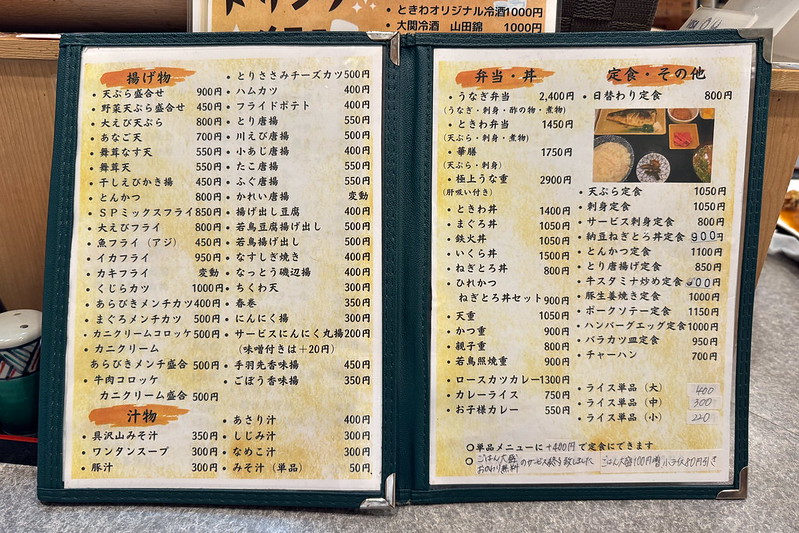 ときわオリジナル冷酒1000円
大関冷酒 山田錦 1000円
揚げ物
・天ぷら盛合せ 900円
・野菜天ぷら盛合せ 450円
・大えび天ぷら 800円
・あなご天 700円
・舞茸なす天 550円
・舞茸天 550円
・干しえびかき揚 450円
・とんかつ 800円
・SPミックスフライ850円
・大えびフライ 800円
・魚フライ(アジ) 450円
・イカフライ 950円
・カキフライ 変動
・くじらカツ 1000円
・あらびきメンチカツ400円
・まぐろメンチカツ 500円
・カニクリームコロッケ500円
・カニクリーム
あらびきメンチ盛合 500円
・牛肉コロッケ
カニクリーム盛合 500円
汁物
・具沢山みそ汁 350円
・ワンタンスープ 300円
・豚汁 300円
・とりささみチーズカツ500円
・ハムカツ 400円
・フライドポテト 400円
・とり唐揚 500円
・川えび唐揚 500円
・小あじ唐揚 400円
・たこ唐揚 550円
・ふぐ唐揚 550円
・かれい唐揚 変動
・揚げ出し豆腐 400円
・若鳥豆腐揚げ出し 500円
・若鳥揚げ出し 500円
・なすしぎ焼き 400円
・なっとう磯辺揚 400円
・ちくわ天 300円
・春巻 350円
・にんにく揚 300円
・サービスにんにく丸揚200円
(味噌付きは+20円)
・手羽先香味揚 450円
・ごぼう香味揚 350円
・あさり汁 400円
・しじみ汁 300円
・なめこ汁 300円
・みそ汁(単品) 50円
弁当・丼
・うなぎ弁当 2,400円
(うなぎ・刺身・酢の物・煮物)
・ときわ弁当 1450円
(天ぷら・刺身・煮物)
・華膳 1750円
(天ぷら・刺身)
・極上うな重 2900円
(肝吸い付き)
・ときわ丼 1400円
・まぐろ丼 1050円
・鉄火丼 1050円
・いくら丼 1500円
・ねぎとろ丼 800円
・ひれかつ
ねぎとろ丼セット900円
・天重 1050円
・かつ重 900円
・親子重 800円
・若鳥照焼重 900円
・ロースカツカレー1300円
・カレーライス 750円
・お子様カレー 550円
定食・その他
・日替わり定食 800円
・天ぷら定食 1050円
・刺身定食 1050円
・サービス刺身定食 800円
・納豆ねぎとろ丼定食 900円
・とんかつ定食 1100円
・とり唐揚げ定食 850円
・牛スタミナ炒め定食 900円
・豚生姜焼き定食 1000円
・ポークソテー定食 1150円
・ハンバーグエッグ定食1000円
・バラカツ皿定食 950円
・チャーハン 700円
・ライス単品(大) 400
・ライス単品(中) 300
・ライス単品(小) 220
○単品メニューに+400円で定食にできます
○ごはん大盛 おかわり無料 のサービス終了致しました ごはん大盛100円増